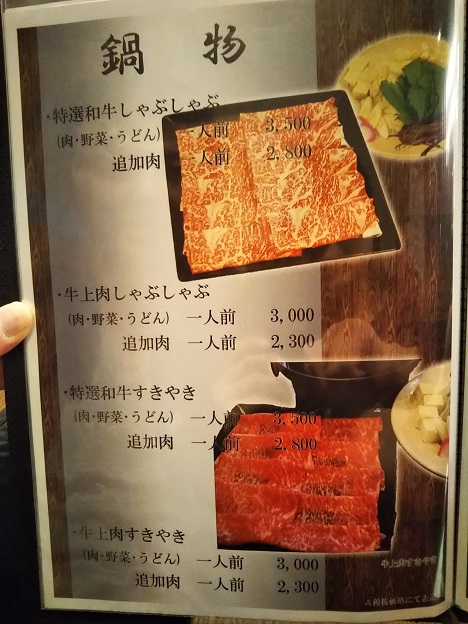 鍋物
・特選和牛しゃぶしゃぶ
(肉・野菜・うどん) 一人前 3,500
追加肉 一人前 2,800
・牛上肉しゃぶしゃぶ
(肉・野菜・うどん) 一人前 3,000
追加肉 一人前 2,300
・特選和牛すきやき
(肉・野菜・うどん) 一人前 3,500
追加肉 一人前 2,800
・牛上肉すきやき
(肉・野菜・うどん) 一人前 3,000
追加肉 一人前 2,300
牛上肉すきやき
税抜価格にて